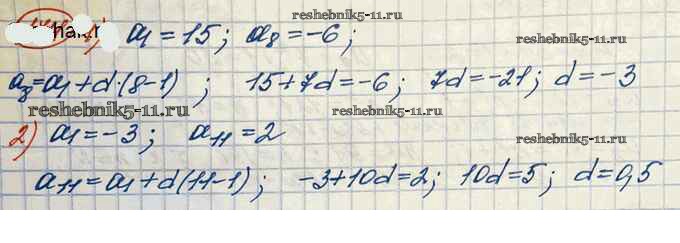 reshebnik5-11.ru
1) a₁ = 15; a₈ = -6;
reshebnik5-11.ru
a₈ = a₁ + d·(8-1); 15 + 7d = -6; 7d = -21; d = -3
reshebnik5-11.ru reshebnik5-11.ru
2) a₁ = -3; a₁₁ = 2
reshebnik5-11.ru
a₁₁ = a₁ + d(11-1); -3 + 10d = 2; 10d = 5; d = 0,5